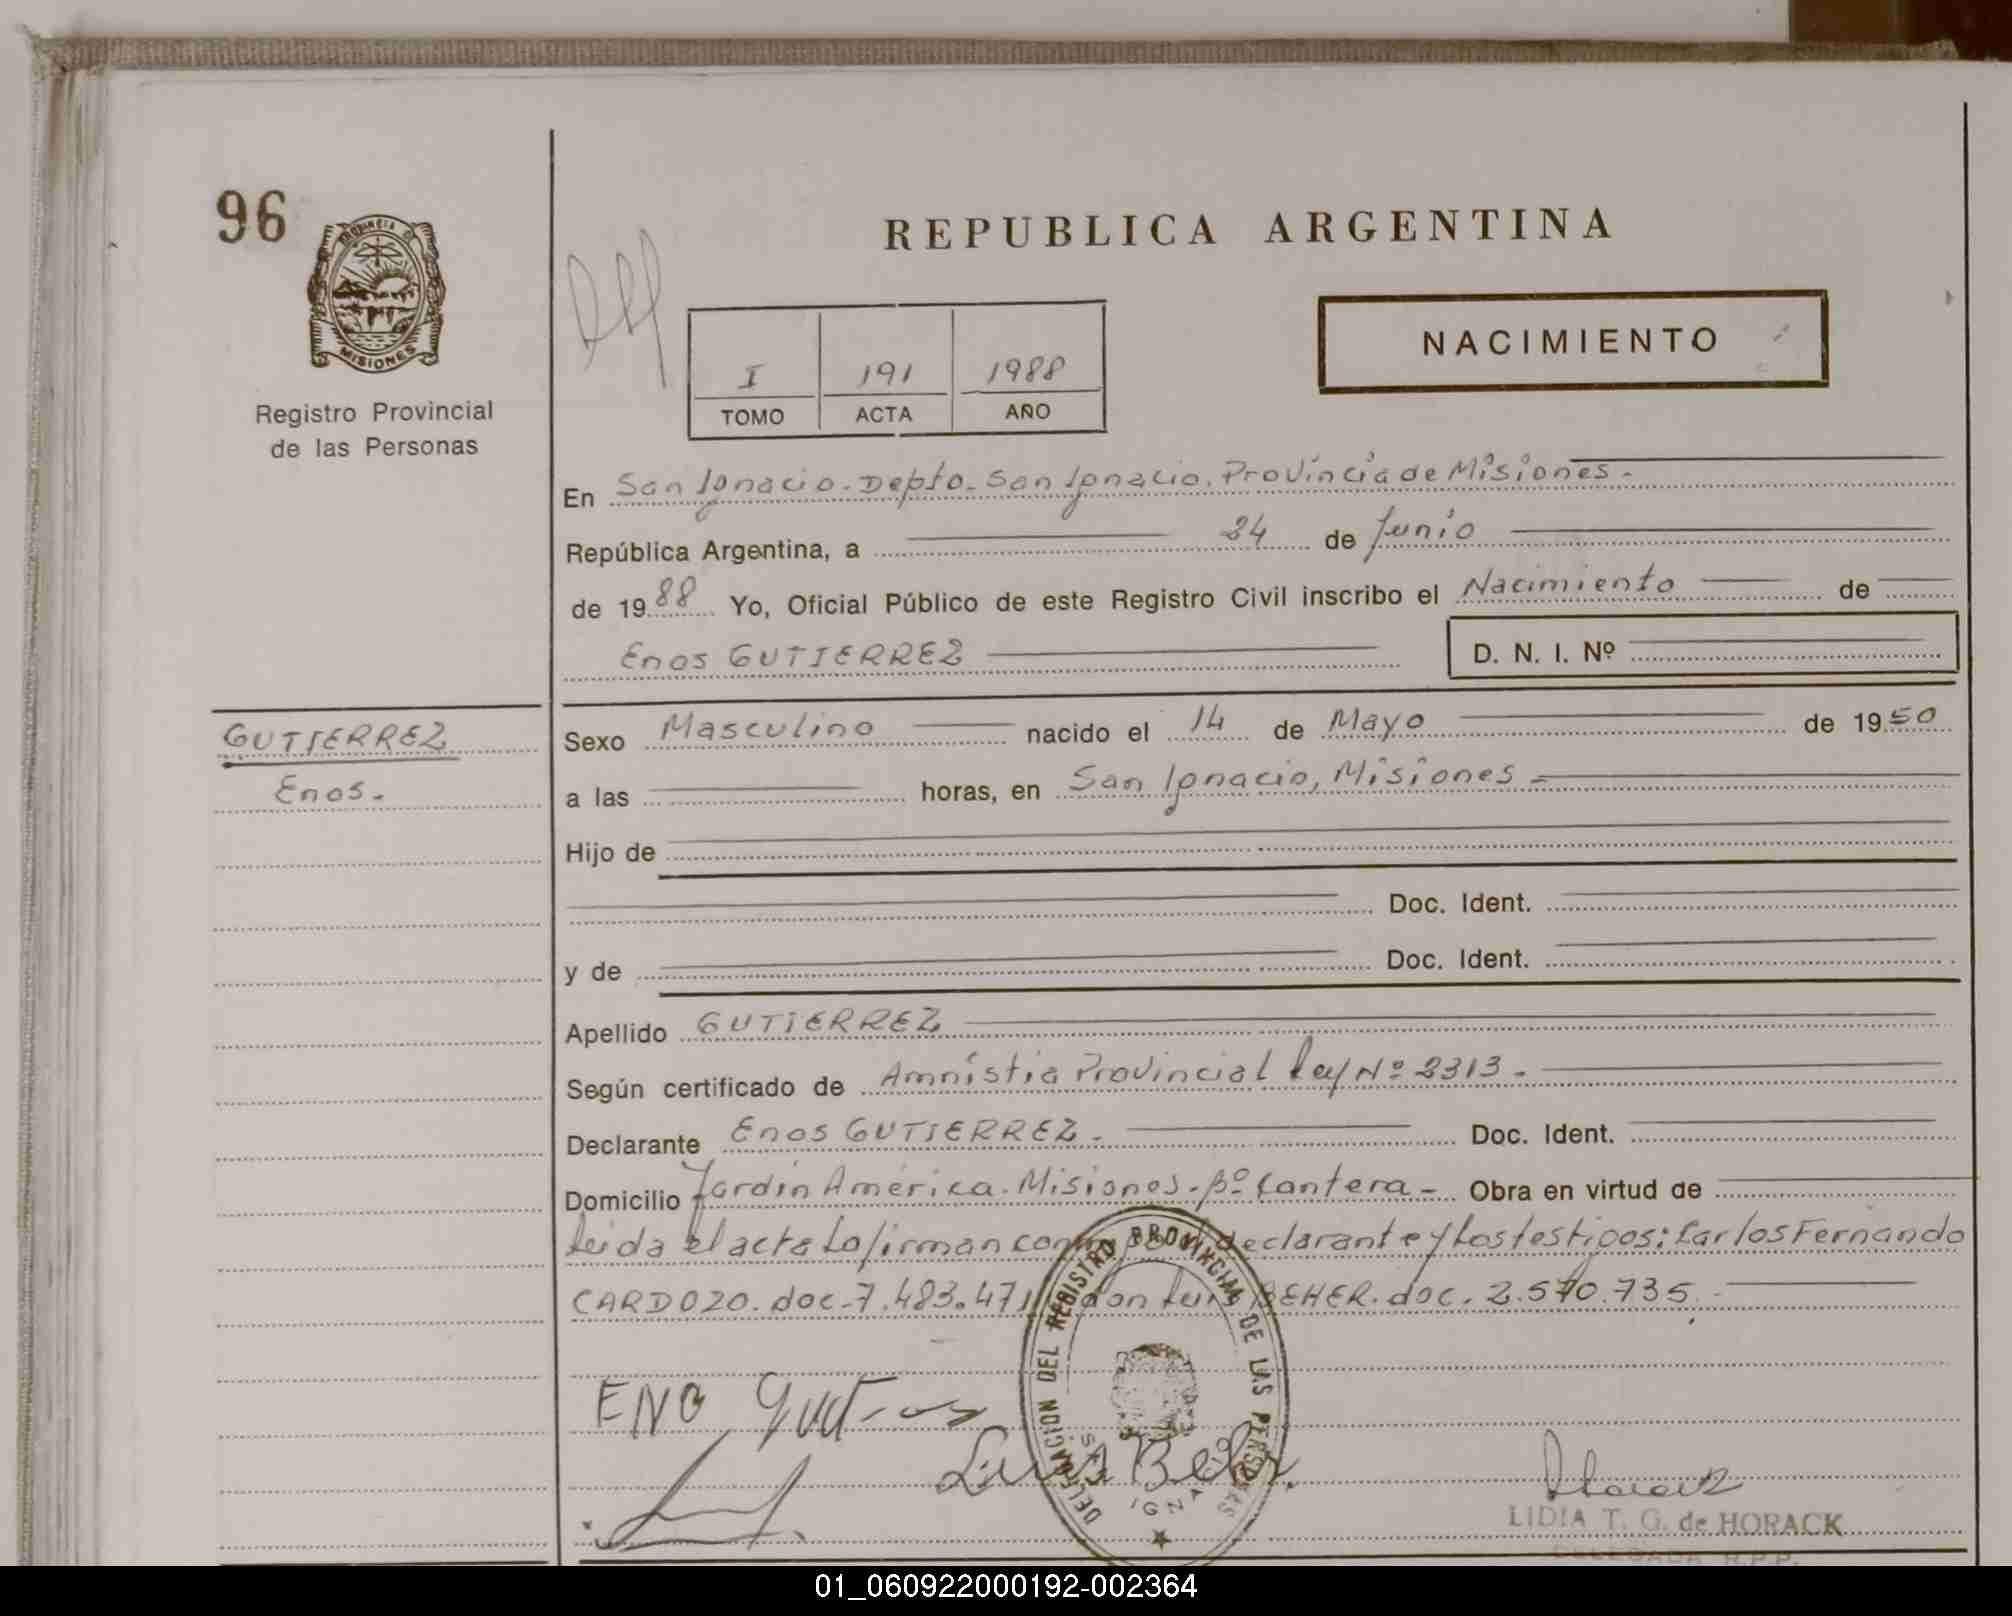 96
PROVINCIA D
MISIONES
Registro Provincial
de las Personas
REPUBLICA ARGENTINA
NACIMIENTO
I 191 1988
TOMO ACTA AÑO
En San Ignacio. Depto. San Ignacio. Provincia de Misiones -
República Argentina, a 24 de Junio
de 19 88 Yo, Oficial Público de este Registro Civil inscribo el Nacimiento de
Enos GUTIERREZ D. N. I. Nº
GUTIERREZ
Enos.
Sexo Masculino nacido el 14 de Mayo de 19 50
a las horas, en San Ignacio, Misiones -
Hijo de
Doc. Ident.
y de Doc. Ident.
Apellido GUTIERREZ
Según certificado de Amnistia Provincial Ley Nº 2313 -
Declarante Enos GUTIERREZ - Doc. Ident.
Domicilio Jardín América. Misiones - Bº Cantera - Obra en virtud de
Leida el acta La firman declarante y Los testigos: Carlos Fernando
CARDOZO. doc. 7.483.471 don Luis BEHER. doc. 2.570.735.
DELEGACION DEL REGISTRO PROVINCIAL DE LAS PERSONAS
SAN IGNACIO
ENO
Luis Beh
LIDIA T. G. de HORACK
DELEGADA R.P.P.
01_060922000192-002364